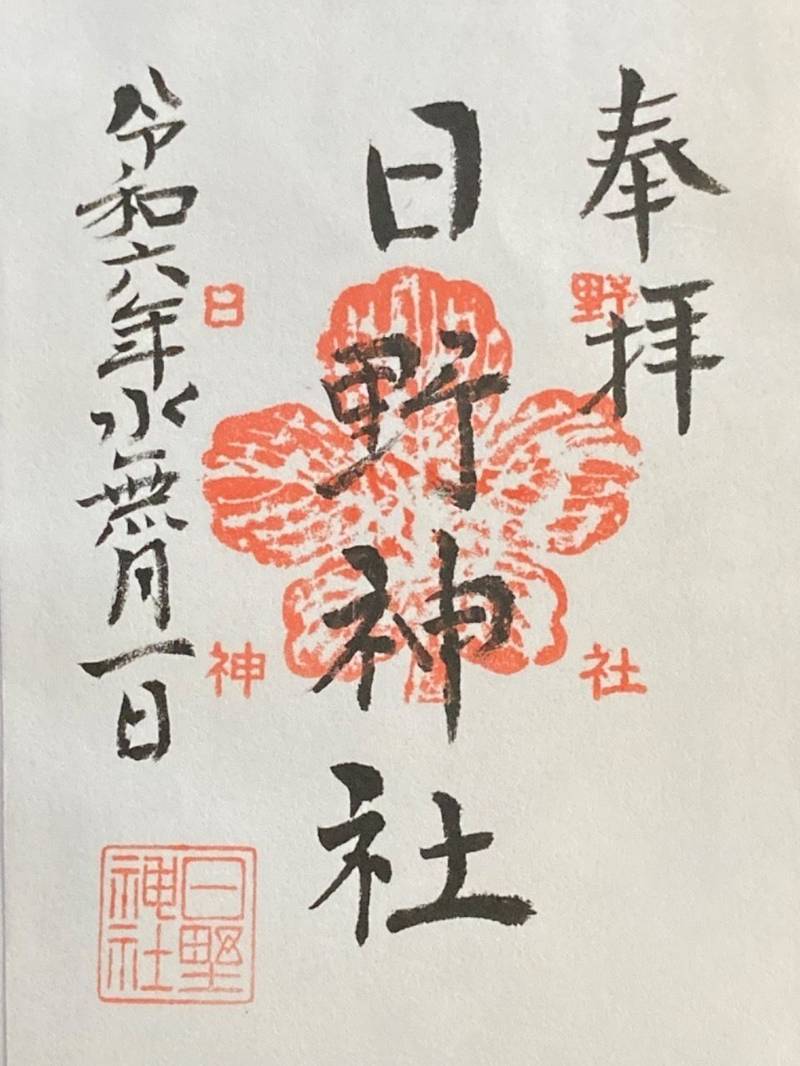 奉拝
日野神社
令和六年水無月一日
野
日
社
神
日野
神社